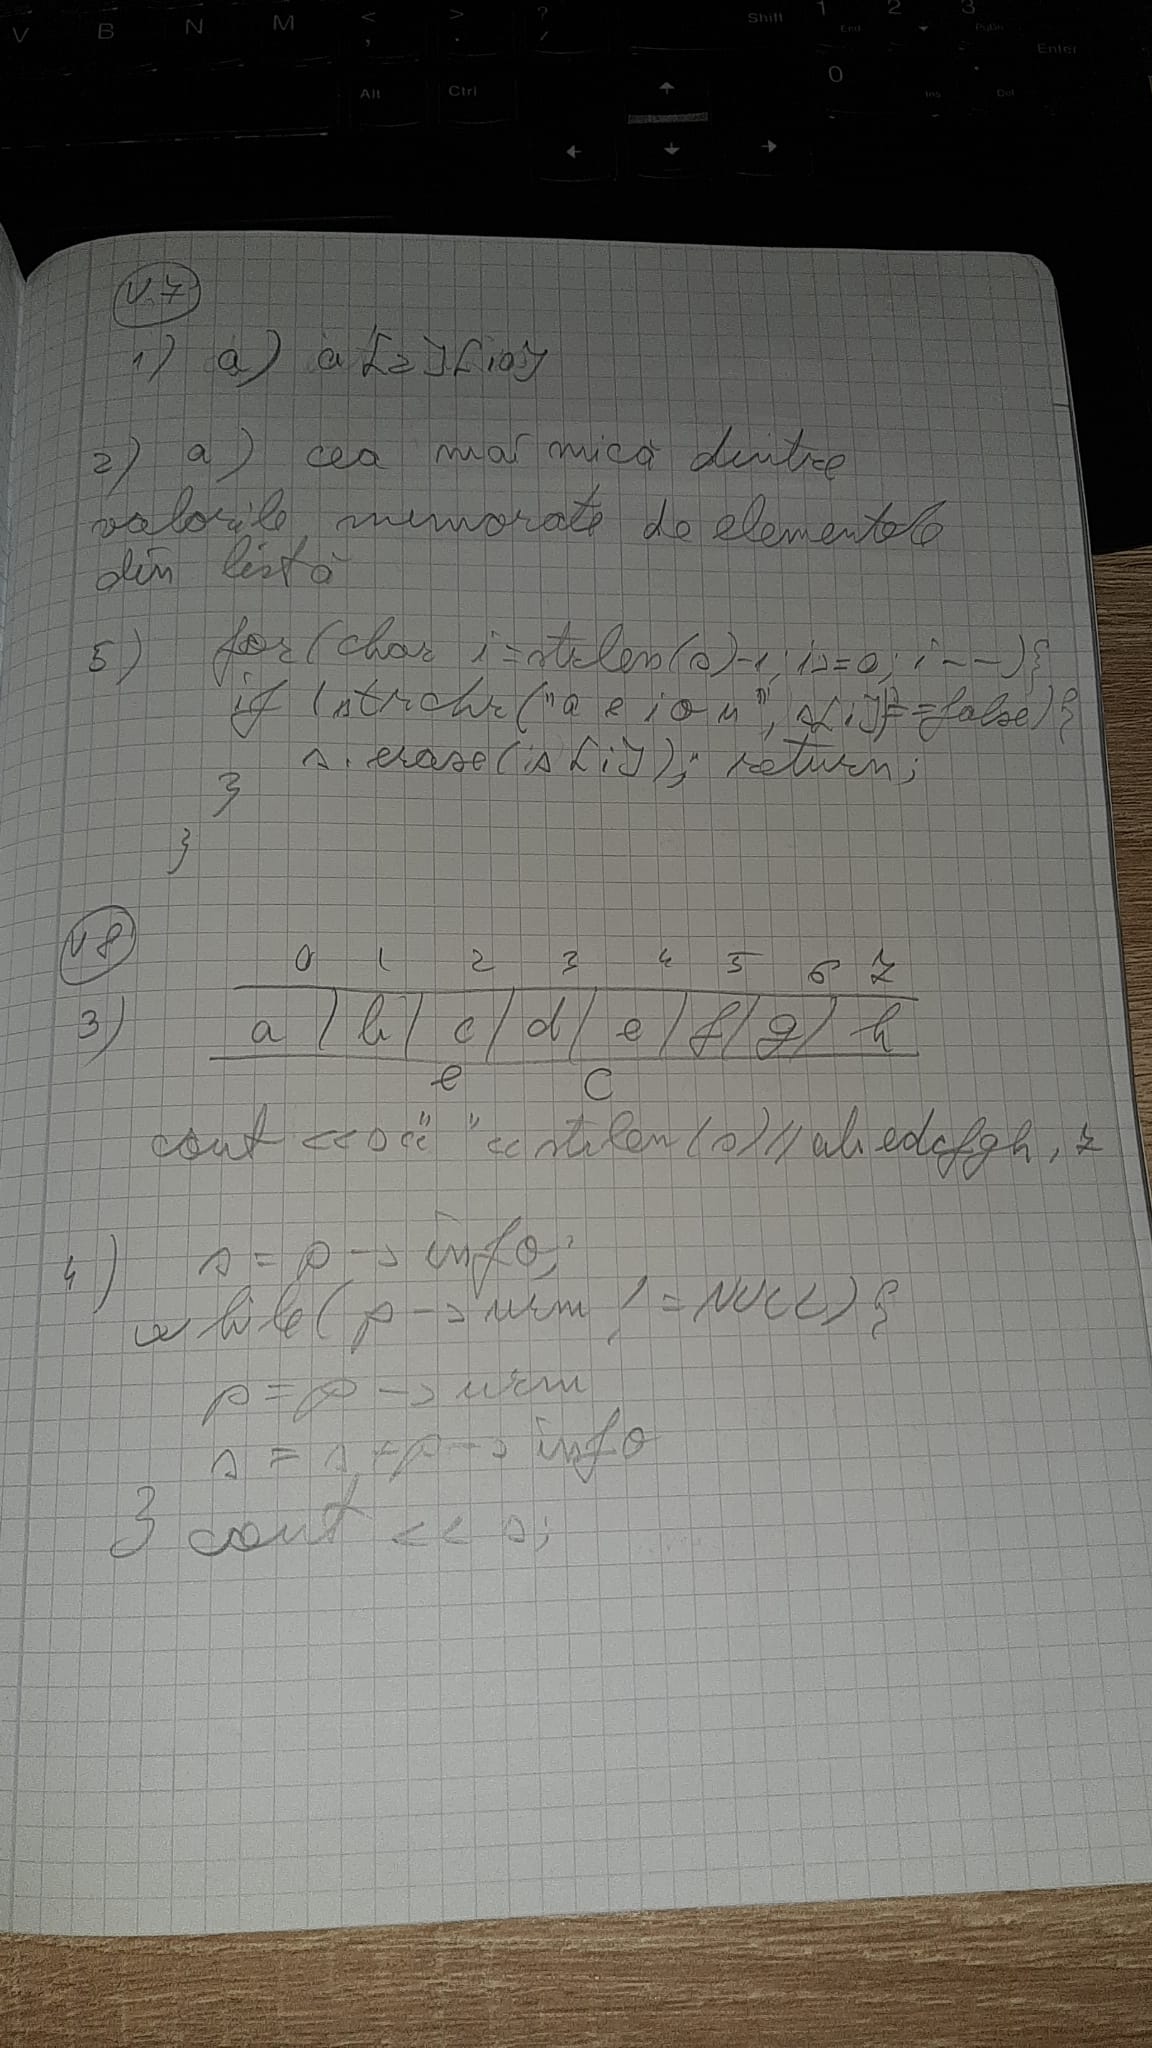 V B N M < , > . ? / Shift 1 End 2 3 PgDn Enter
Alt Ctrl 0 Ins Del
V.7
1) a) a[2][10]
2) a) cea mai mică dintre
valorile memorate de elementele
din listă
5) for(char i=strlen(s)-1; i>=0; i--){
if (strchr("aeiou", s[i])==false){
s.erase(s[i]); return;
}
}
V8
0 1 2 3 4 5 6 7
3) a | b | c | d | e | f | g | h
e c
cout <<s<<" "<<strlen(s)//abedcfgh, 7
4) s = p -> info;
while(p->urm != NULL){
p=p->urm
s = s+p->info
} cout << s;